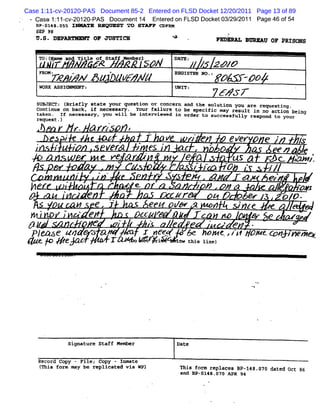 Case 1:11-cv-20120-PAS Document 85-2 Entered on FLSD Docket 12/20/2011 Page 13 of 89
Case 1:11-cv-20120-PAS Document 14 Entered on FLSD Docket 03/29/2011 Page 46 of 54
BP-S148.055 INMATE REQUEST TO STAFF CDFRM
SEP 98
U.S. DEPARTMENT OF JUSTICE FEDERAL BUREAU OF PRISONS
TO: (Name and Title of Staff Member) DATE:
UNIT MANAGER HARRISON 11/15/2010
FROM: REGISTER NO.:
TRAIAN BUJDUVEANU 80655-004
WORK ASSIGNMENT: UNIT:
7 EAST
SUBJECT: (Briefly state your question or concern and the solution you are requesting.
Continue on back, if necessary. Your failure to be specific may result in no action being
taken. If necessary, you will be interviewed in order to successfully respond to your
request.)
Dear Mr. Harrison.
Despite the fact that I have written to everyone in this
institution, several times in fact, nobody has been able
to answer me regarding my legal status at FDC Miami.
As per today, my Custody Classification is still
Community, in the Sentry System, and I am being held
here without a Charge or a Sanction, on a fake allegation
of an incident that has occured on October 13, 2010.
As you can see, It has been over a month since the alleged
minor incident has occured and I can no longer be charged
and sanctioned with this alleged incident.
Please understand that I need to be home, in Home Confinement
due to the fact that I am (Do not write below this line)
Signature Staff Member Date
Record Copy - File; Copy - Inmate
(This form may be replicated via WP) This form replaces BP-148.070 dated Oct 86
and BP-S148.070 APR 94